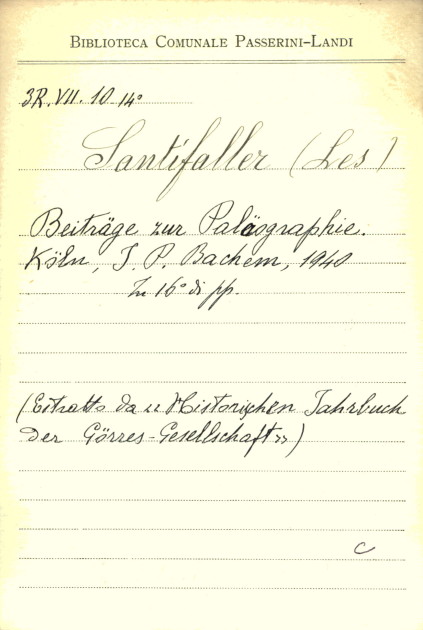 BIBLIOTECA COMUNALE PASSERINI-LANDI
3R. VII. 10 14°
Santifaller (Les)
Beiträge zur Paläographie.
Köln, J. P. Bachem, 1940
In 16° di pp.
(Estratto da «Historischen Jahrbuch
der Görres-Gesellschaft»)
C